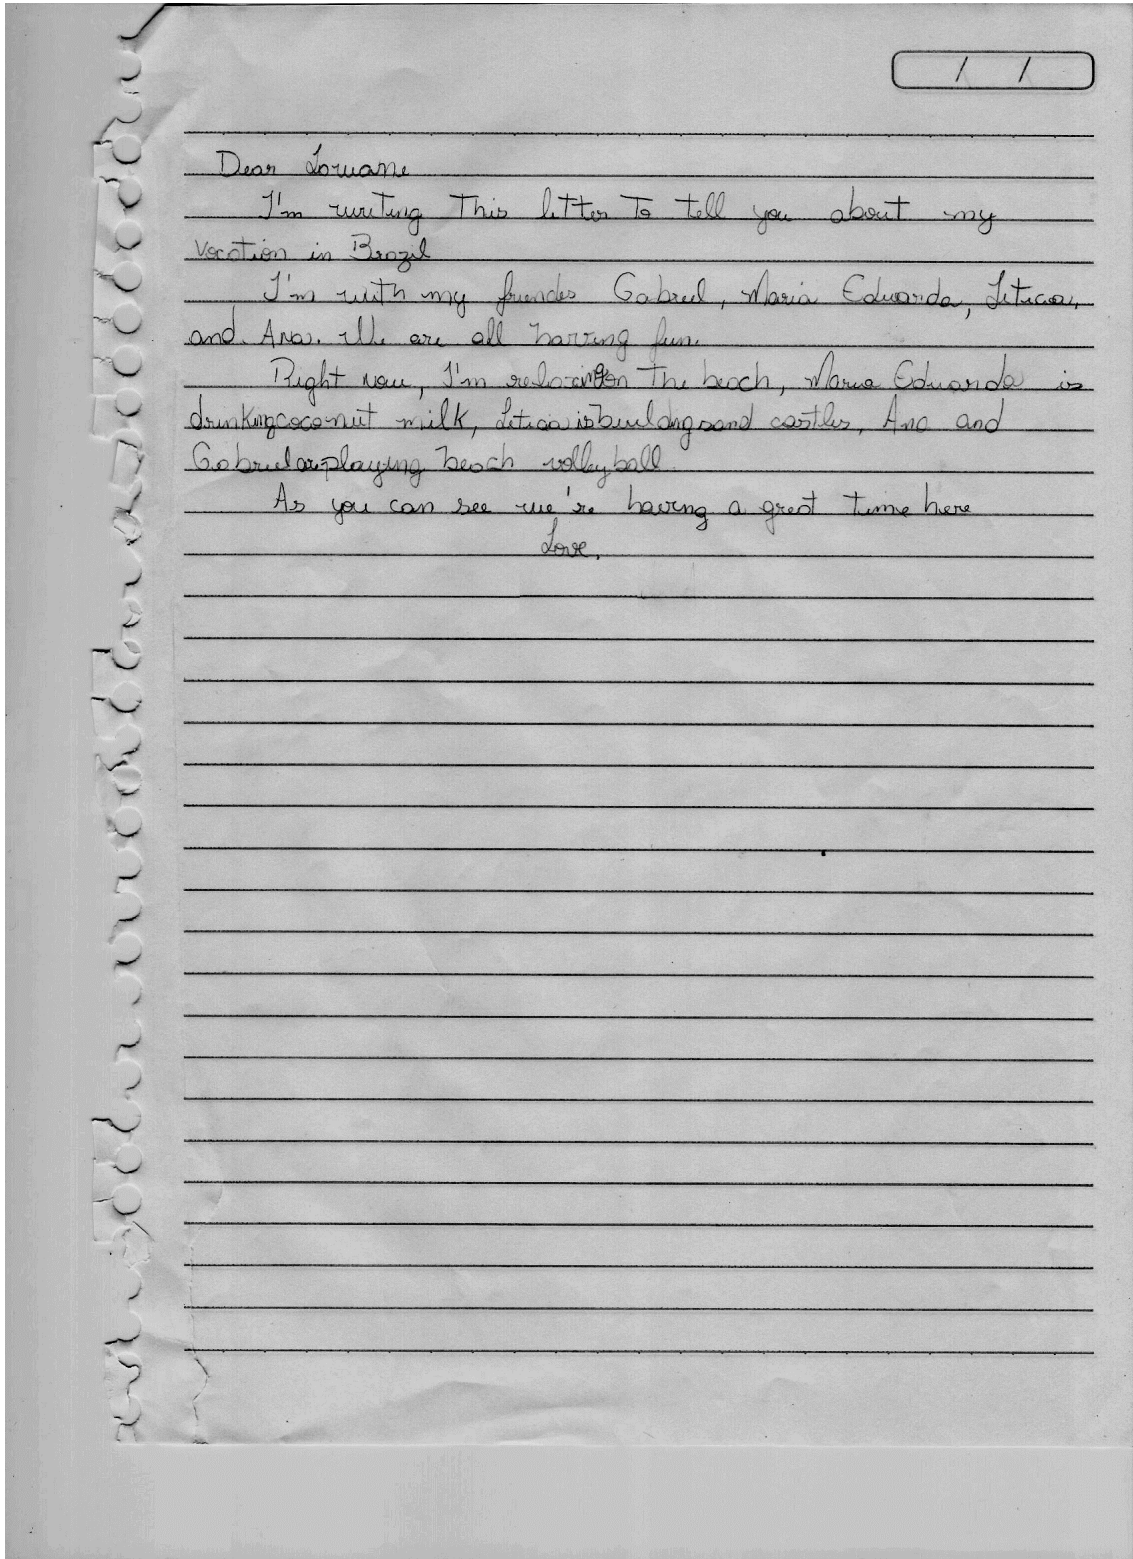 / /
Dear Loruane
I'm writing This letter To tell you about my
vacation in Brazil
I'm with my friends Gabriel, Maria Eduarda, Leticia,
and Ana. We are all having fun.
Right now, I'm relaxing on The beach, Maria Eduarda is
drinking coconut milk, Leticia is buildng sand castles, Ana and
Gabriel are playing beach volleyball
As you can see we're having a great time here
Love,